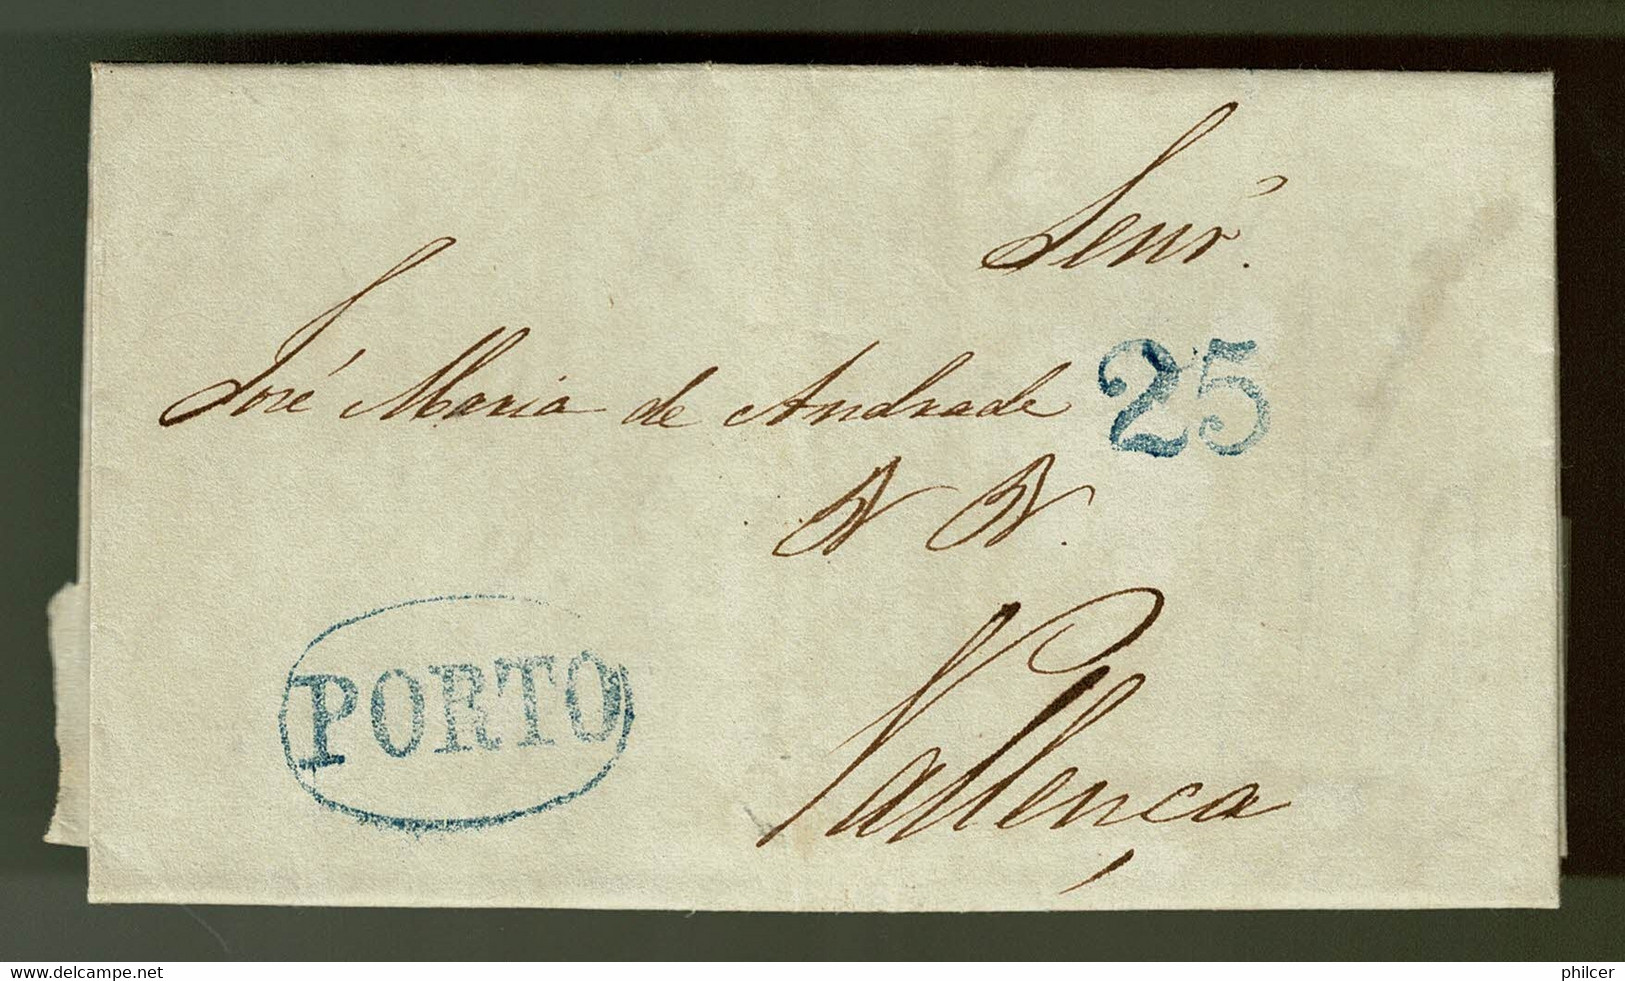 Senr.
José Maria de Andrade 25
N N.
Vallença
PORTO
delcampe.net
philcer